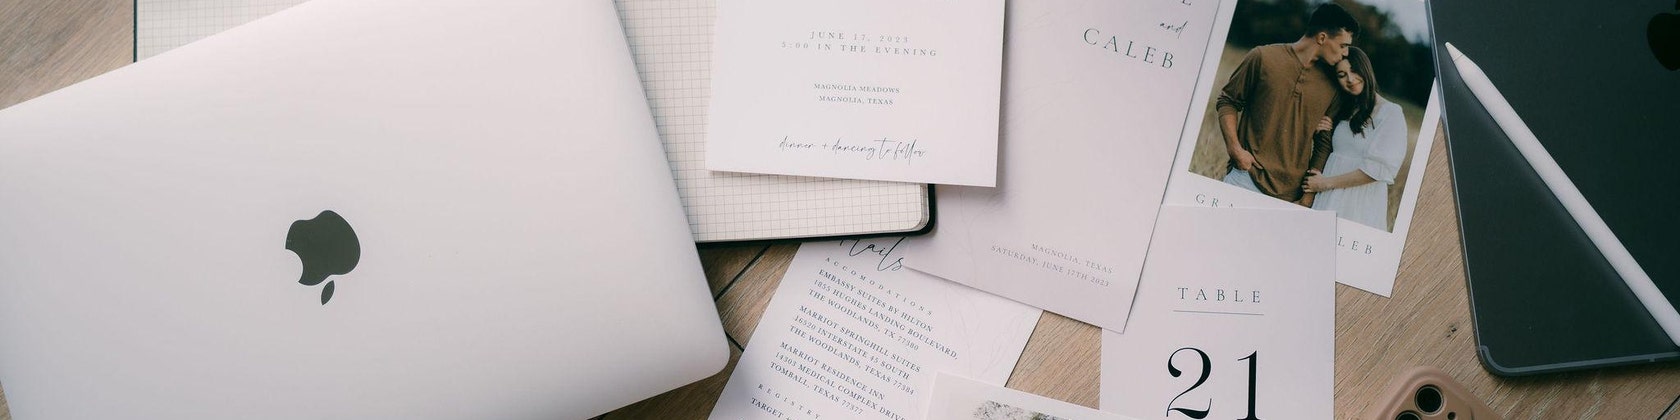 JUNE 17, 2023
5:00 IN THE EVENING
MAGNOLIA MEADOWS
MAGNOLIA, TEXAS
dinner + dancing to follow
and
CALEB
MAGNOLIA, TEXAS
SATURDAY, JUNE 17TH 2023
ACCOMODATIONS
EMBASSY SUITES BY HILTON
1855 HUGHES LANDING BOULEVARD,
THE WOODLANDS, TX 77380
MARRIOT SPRINGHILL SUITES
16520 INTERSTATE 45 SOUTH
THE WOODLANDS, TEXAS 77384
MARRIOT RESIDENCE INN
14303 MEDICAL COMPLEX DRIVE
TOMBALL, TEXAS 77377
REGISTRY
TARGET +
TABLE
21